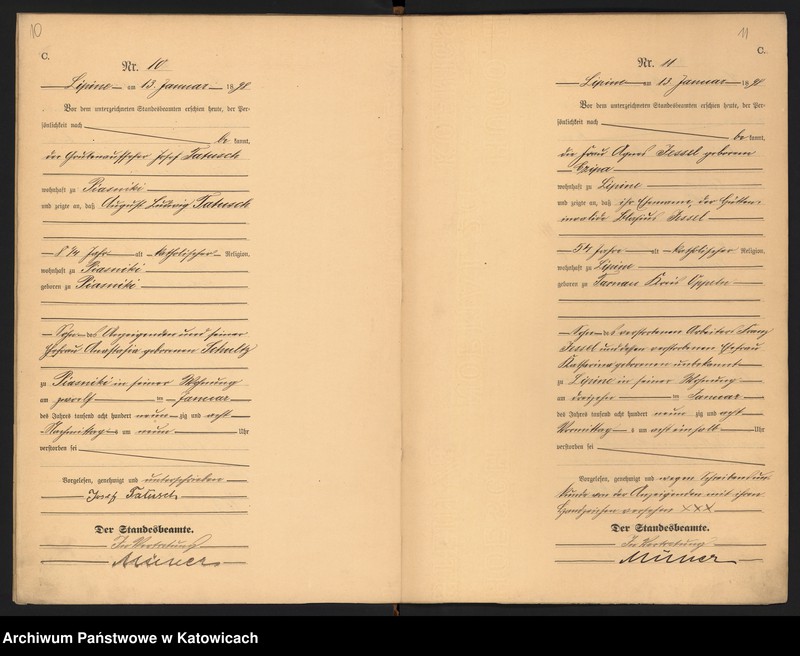 10
C.
Nr. 10
Lipine am 13. Januar 1898
Vor dem unterzeichneten Standesbeamten erschien heute, der Per-
sönlichkeit nach
be kannt,
der Grubenaufseher Josef Tatusch
wohnhaft zu Piasniki
und zeigte an, daß August Ludwig Tatusch
Jahr alt katholischer Religion,
wohnhaft zu Piasniki
geboren zu Piasniki
Sohn des Anzeigenden und seiner
Ehefrau Anastasia geborenen Schultz
zu Piasniki in seiner Wohnung
am zwölf ten Januar
des Jahres tausend acht hundert neun zig und acht
Nachmittag s um neun Uhr
verstorben sei
Vorgelesen, genehmigt und unterschrieben
Josef Tatusch
Der Standesbeamte.
In Vertretung
11
C.
Nr. 11
Lipine am 13. Januar 1898
Vor dem unterzeichneten Standesbeamten erschien heute, der Per-
sönlichkeit nach
be kannt,
die Frau Agnes Jessel geborene
wohnhaft zu Lipine
und zeigte an, daß ihr Ehemann, der Hütten-
invalide Blasius Jessel
54 Jahre alt katholischer Religion,
wohnhaft zu Lipine
geboren zu Tarnau Kreis Oppeln
Sohn des verstorbenen Arbeiters Franz
Jessel und dessen verstorbenen Ehefrau
Katharina geborenen unbekannt
zu Lipine in seiner Wohnung
am dreizehn ten Januar
des Jahres tausend acht hundert neun zig und acht
Vormittag s um acht ein halb Uhr
verstorben sei
Vorgelesen, genehmigt und wegen Schreibensun-
kunde von der Anzeigenden mit ihren
Handzeichen versehen XXX
Der Standesbeamte.
In Vertretung
Archiwum Państwowe w Katowicach